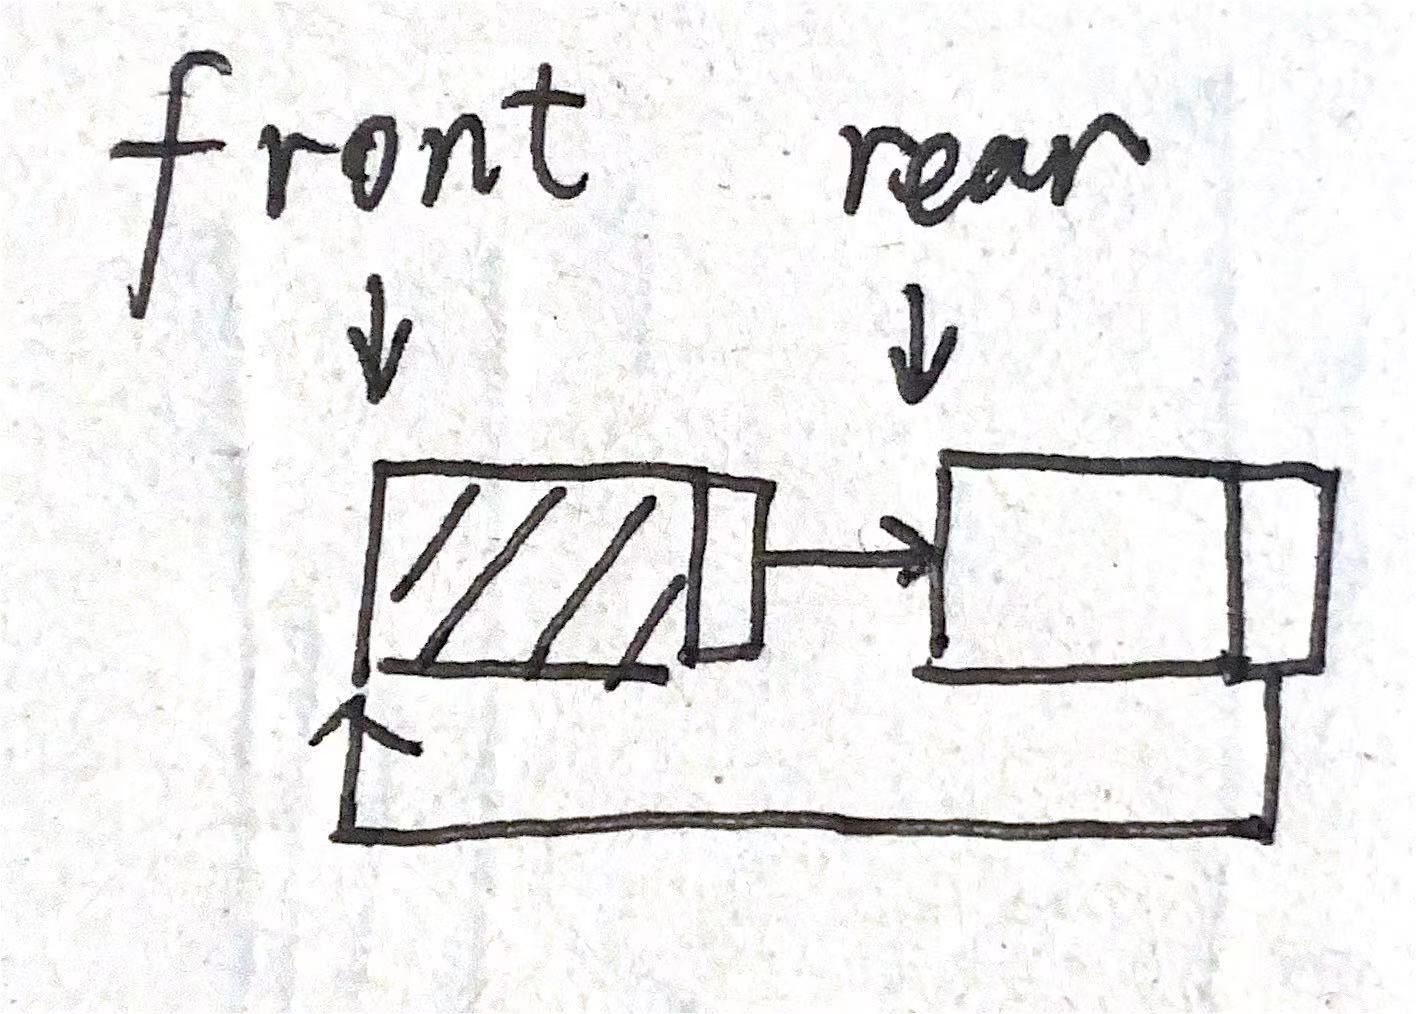 front rear